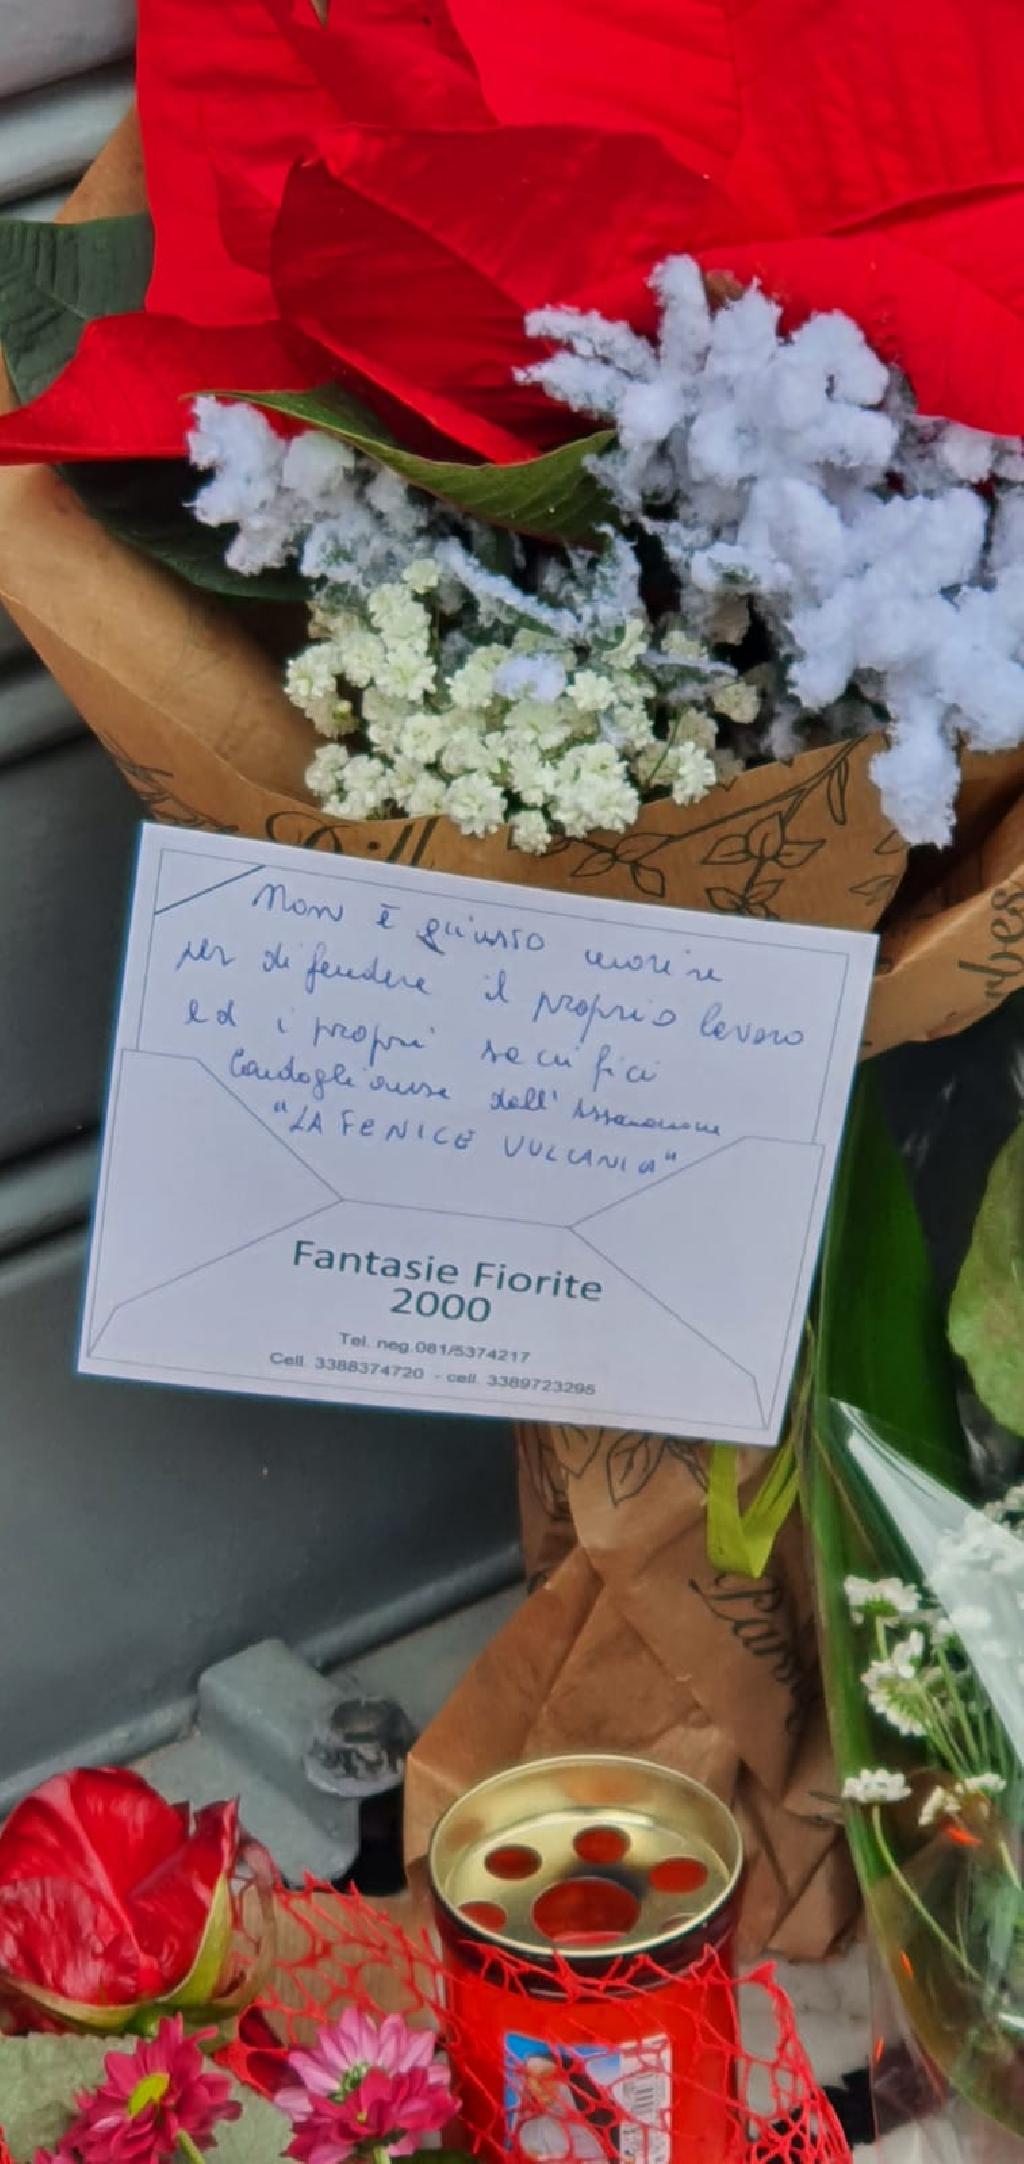 Non è giusto morire
per difendere il proprio lavoro
ed i propri sacrifici
Condoglianze dall'Associazione
"LA FENICE VULCANICA"
Fantasie Fiorite
2000
Tel. neg.081/5374217
Cell. 3388374720 - cell. 3389723295